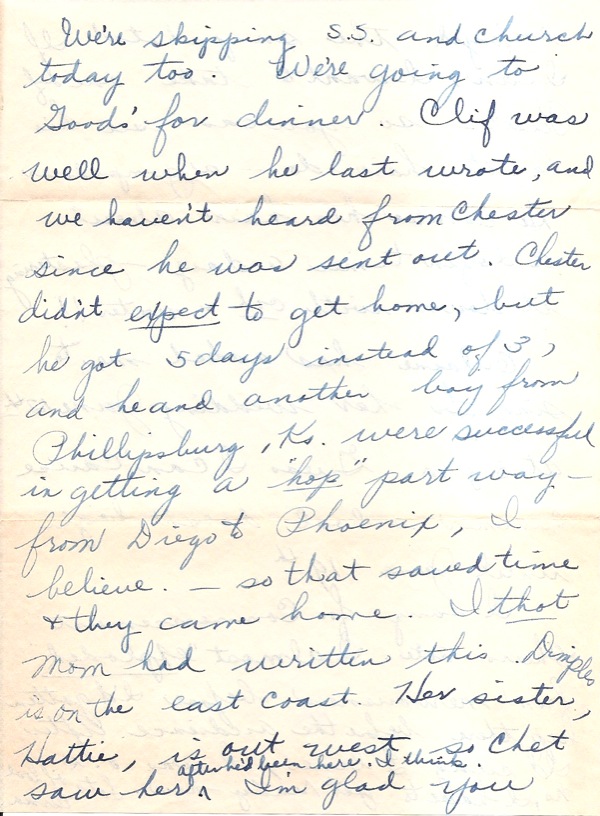 We're skipping S.S. and church
today too. We're going to
Goods' for dinner. Clif was
well when he last wrote, and
we haven't heard from Chester
since he was sent out. Chester
didn't expect to get home, but
he got 5 days instead of 3,
and he and another boy from
Phillipsburg, Ks. were successful
in getting a "hop" part way –
from Diego to Phoenix, I
believe. – so that saved time
& they came home. I thot
Mom had written this. Dimples
is on the east coast. Her sister,
Hattie, is out west, so Chet
after he'd been here. I think.
saw her ^ I'm glad you